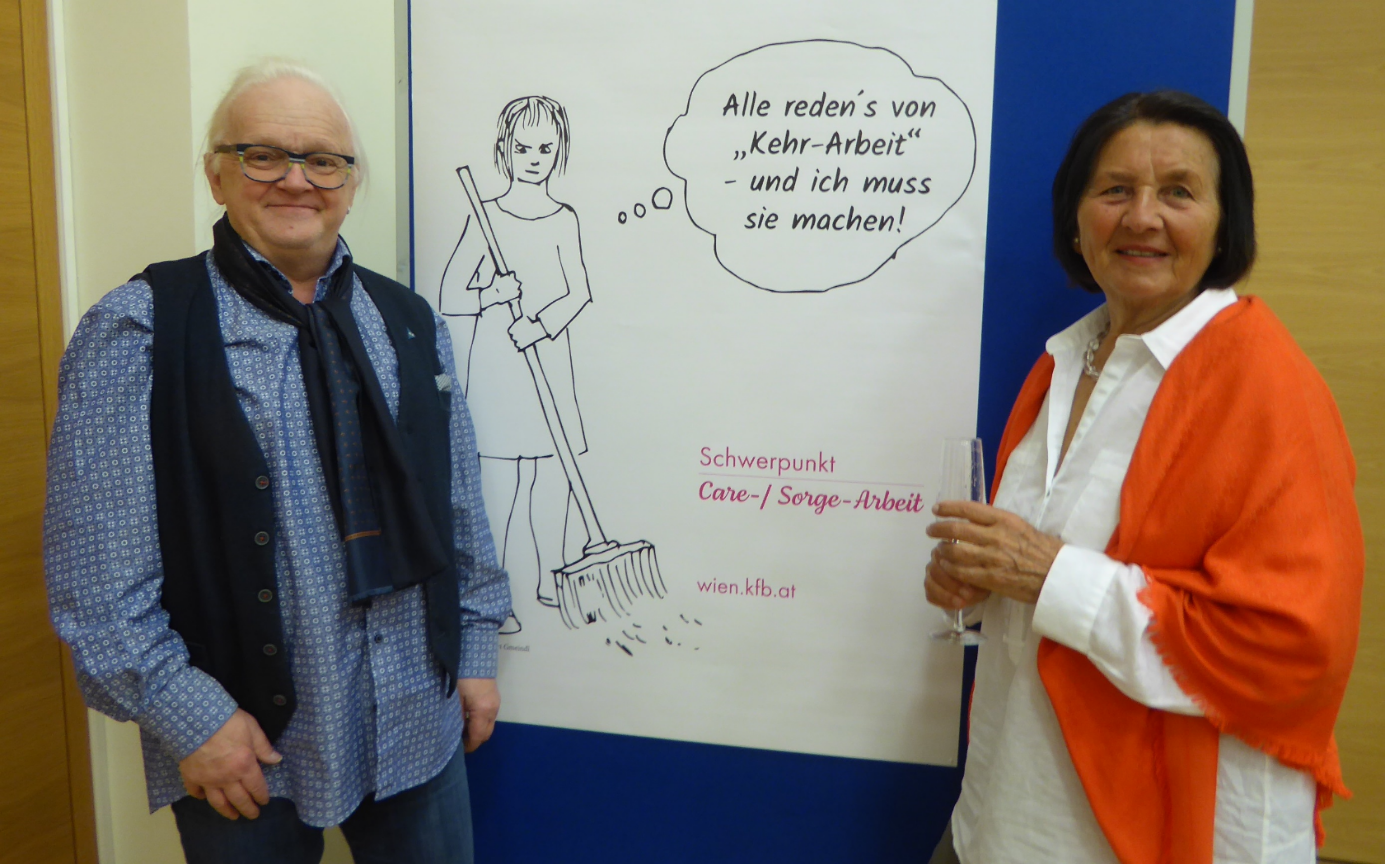 Alle reden´s von
„Kehr-Arbeit“
- und ich muss
sie machen!
Schwerpunkt
Care-/ Sorge-Arbeit
wien.kfb.at